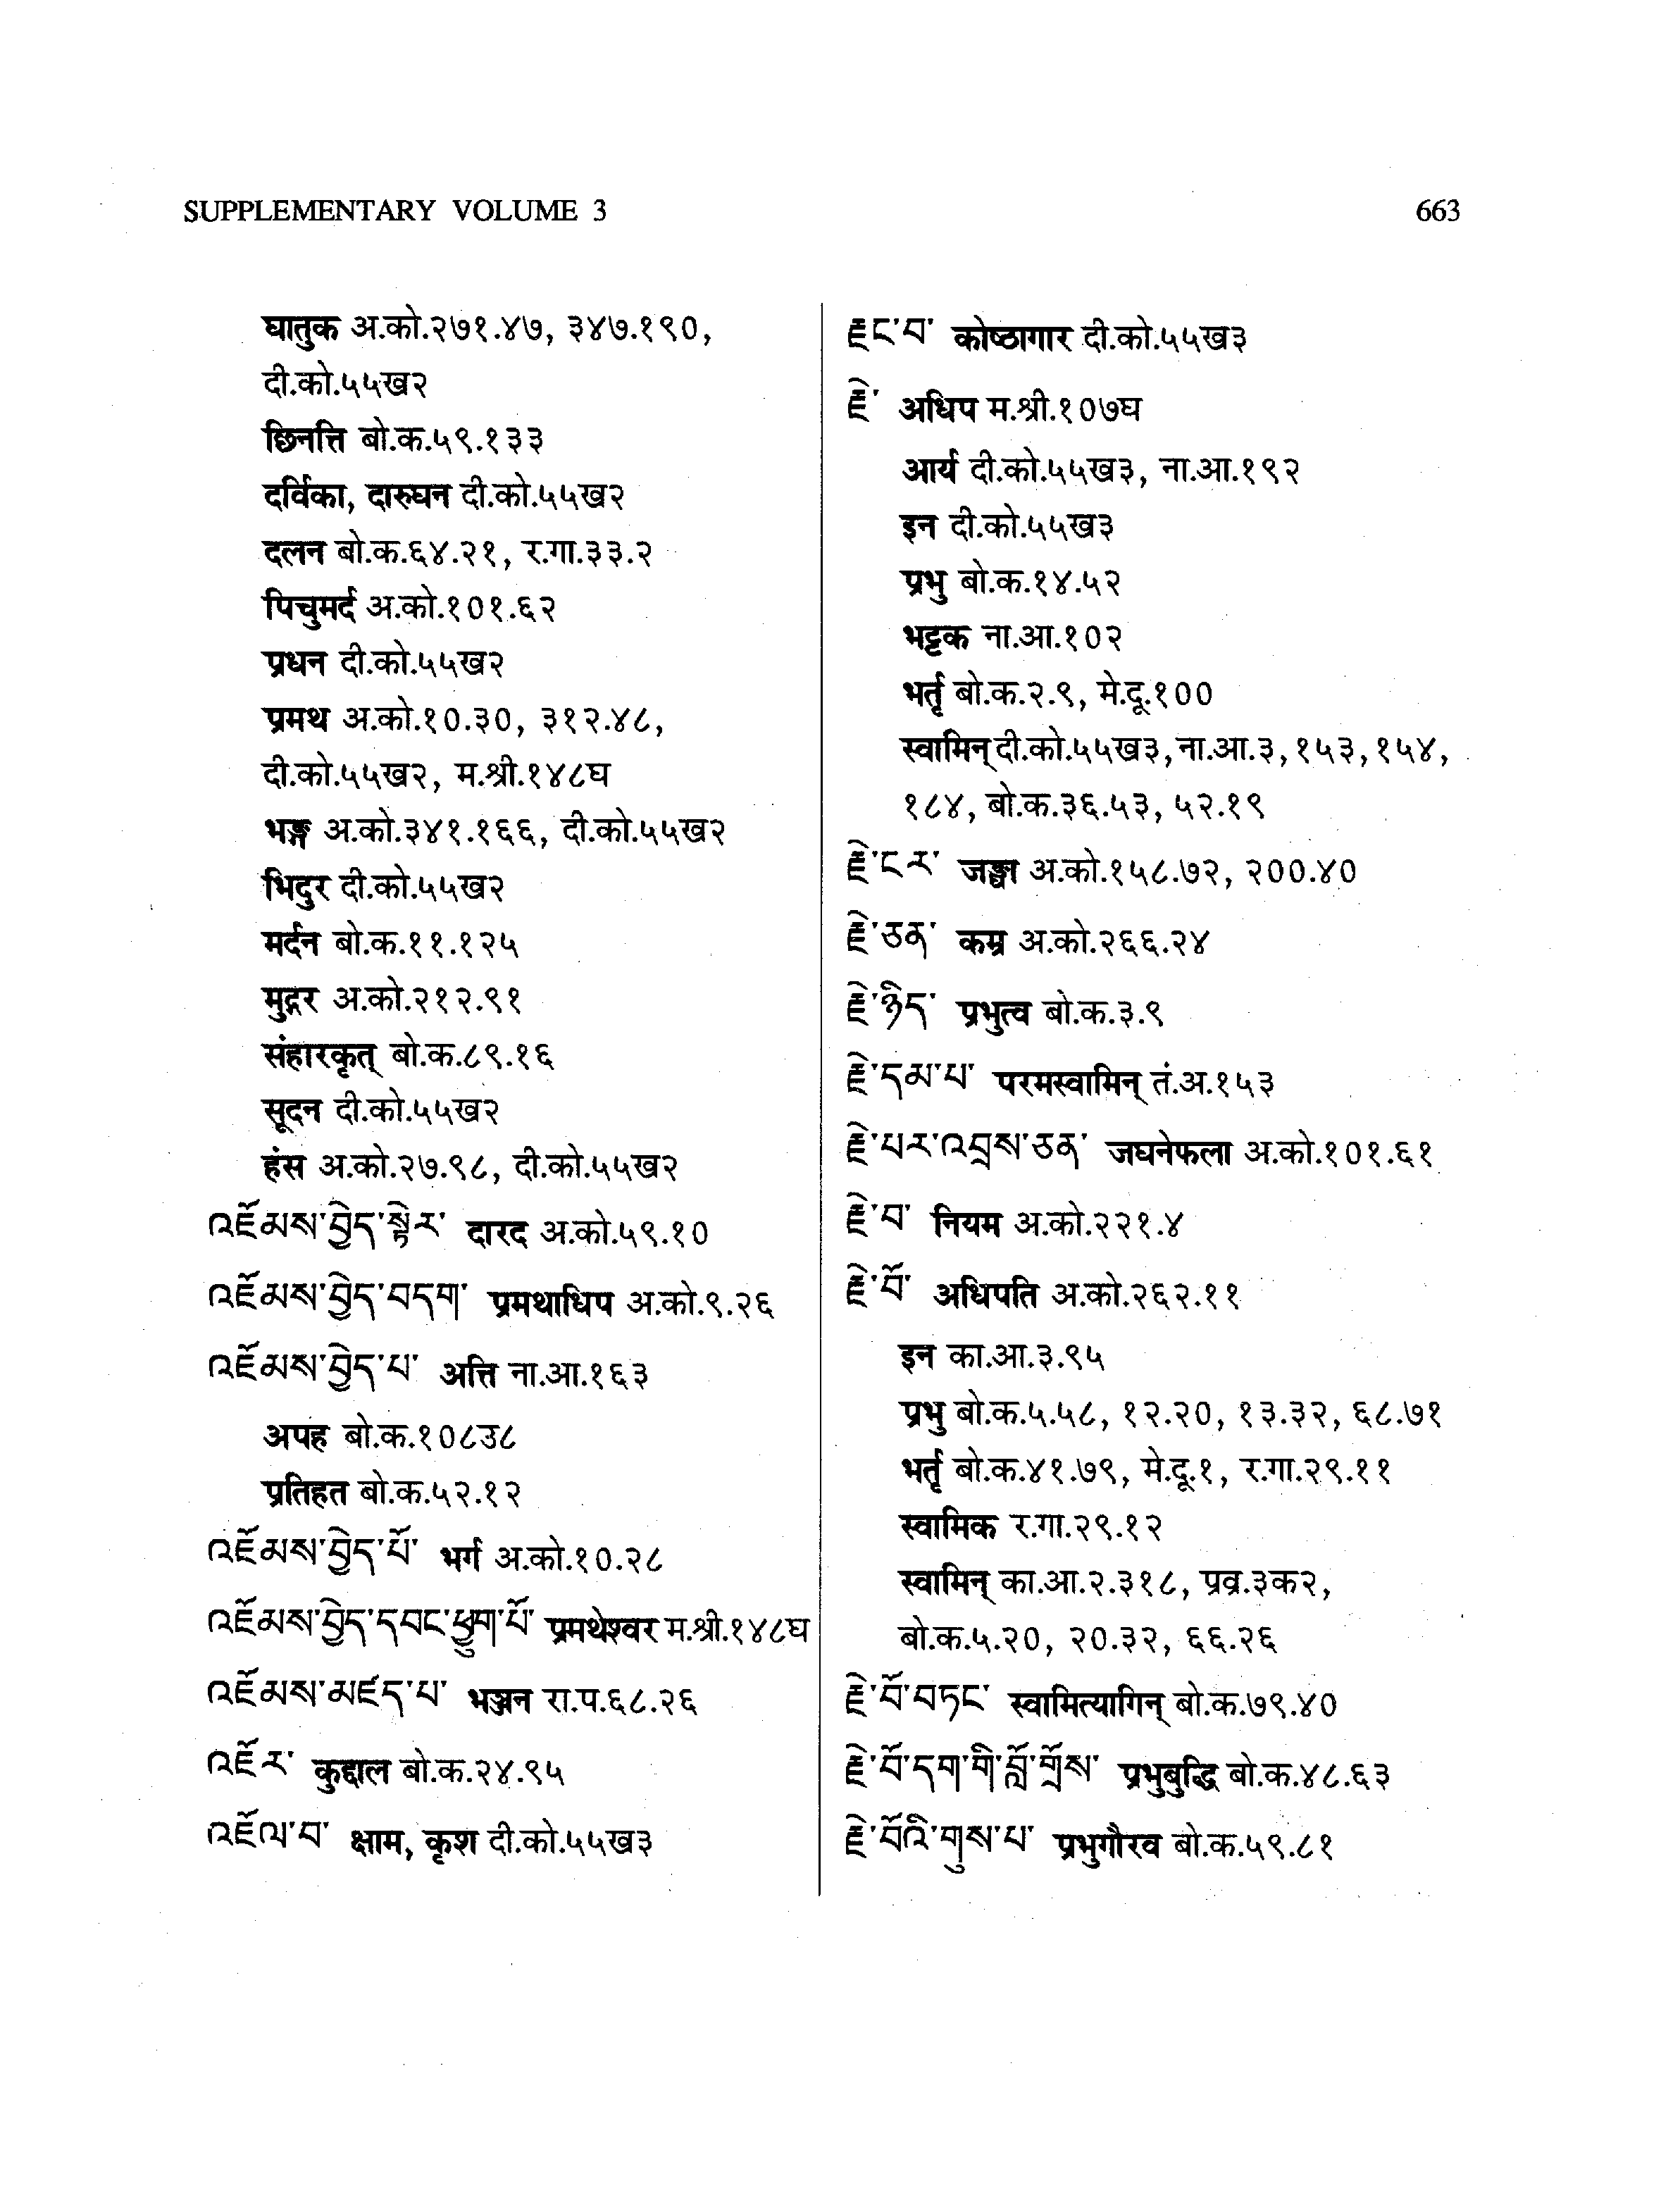 SUPPLEMENTARY VOLUME 3
663
घातुक अ.को.२७१.४७, ३४७.१९०,
दी.को.५५ख२
छिनत्ति बो.क.५९.१३३
दर्विका, दारुघन दी.को.५५ख२
दलन बो.क.६४.२१, र.गा.३३.२
पिचुमर्द अ.को.१०१.६२
प्रधन दी.को.५५ख२
प्रमथ अ.को.१०.३०, ३१२.४८,
दी.को.५५ख२, म.श्री.१४८घ
भङ्ग अ.को.३४१.१६६, दी.को.५५ख२
भिदुर दी.को.५५ख२
मर्दन बो.क.११.१२५
मुद्गर अ.को.२१२.९१
संहारकृत् बो.क.८९.१६
सूदन दी.को.५५ख२
हंस अ.को.२७.९८, दी.को.५५ख२
འཇོམས་བྱེད་སྟེར་ दारद अ.को.५९.१०
འཇོམས་བྱེད་བདག་ प्रमथाधिप अ.को.९.२६
འཇོམས་བྱེད་པ་ अत्ति ना.आ.१६३
अपह बो.क.१०८उ८
प्रतिहत बो.क.५२.१२
འཇོམས་བྱེད་པོ་ भर्ग अ.को.१०.२८
འཇོམས་བྱེད་དབང་ཕྱུག་པོ་ प्रमथेश्वर म.श्री.१४८घ
འཇོམས་མཛད་པ་ भञ्जन रा.प.६८.२६
འཇོར་ कुद्दाल बो.क.२४.९५
འཇོལ་བ་ क्षाम, कृश दी.को.५५ख३
རྫང་བ་ कोष्ठागार दी.को.५५ख३
རྗེ་ अधिप म.श्री.१०७घ
आर्य दी.को.५५ख३, ना.आ.१९२
इन दी.को.५५ख३
प्रभु बो.क.१४.५२
भट्टक ना.आ.१०२
भर्तृ बो.क.२.९, मे.दू.१००
स्वामिन् दी.को.५५ख३, ना.आ.३, १५३, १५४,
१८४, बो.क.३६.५३, ५२.१९
རྗེ་ངར་ जङ्घा अ.को.१५८.७२, २००.४०
རྗེ་ཅན་ कम्र अ.को.२६६.२४
རྗེ་ཉིད་ प्रभुत्व बो.क.३.९
རྗེ་དམ་པ་ परमस्वामिन् तं.अ.१५३
རྗེ་པར་འབྲས་ཅན་ जघनेफला अ.को.१०१.६१
རྗེ་བ་ नियम अ.को.२२१.४
རྗེ་བོ་ अधिपति अ.को.२६२.११
इन का.आ.३.९५
प्रभु बो.क.५.५८, १२.२०, १३.३२, ६८.७१
भर्तृ बो.क.४१.७९, मे.दू.१, र.गा.२९.११
स्वामिक र.गा.२९.१२
स्वामिन् का.आ.२.३१८, प्रव्र.३क२,
बो.क.५.२०, २०.३२, ६६.२६
རྗེ་བོ་བཏང་ स्वामित्यागिन् बो.क.७९.४०
རྗེ་བོ་དག་གི་བློ་གྲོས་ प्रभुबुद्धि बो.क.४८.६३
རྗེ་བོའི་གུས་པ་ प्रभुगौरव बो.क.५९.८१